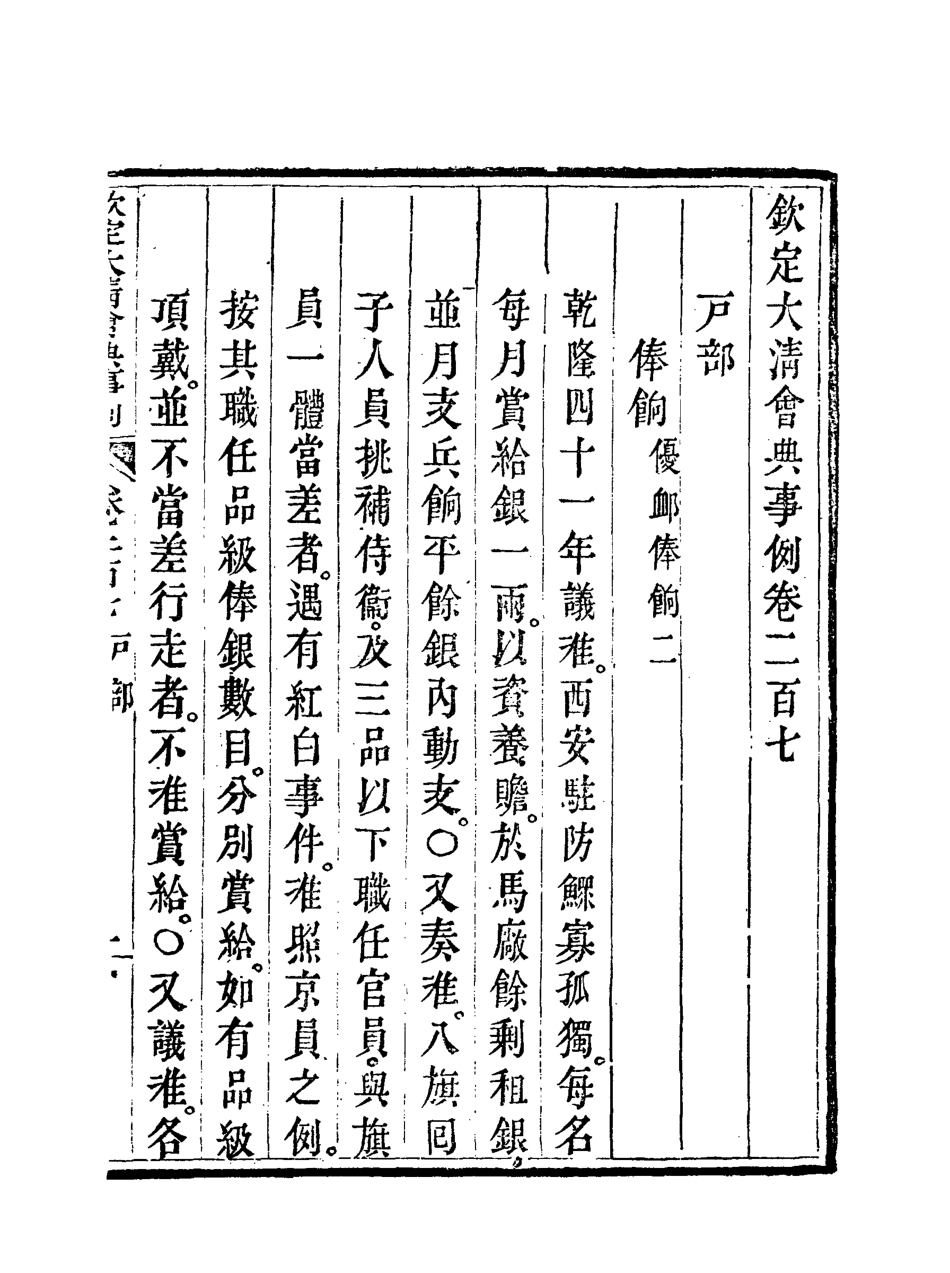 欽定大清會典事例卷二百七
戸部
俸餉優卹俸餉二
乾隆四十一年議准。西安駐防鰥寡孤獨。每名
每月賞給銀一兩。以資養贍。於馬廠餘剩租銀。
並月支兵餉平餘銀內動支。○又奏准。八旗囘
子人員挑補侍衞。及三品以下職任官員。與旗
員一體當差者。遇有紅白事件。准照京員之例。
按其職任品級俸銀數目。分別賞給。如有品級
項戴。並不當差行走者。不准賞給。○又議准。各
欽定大清會典事例 卷二百七 戸部 一